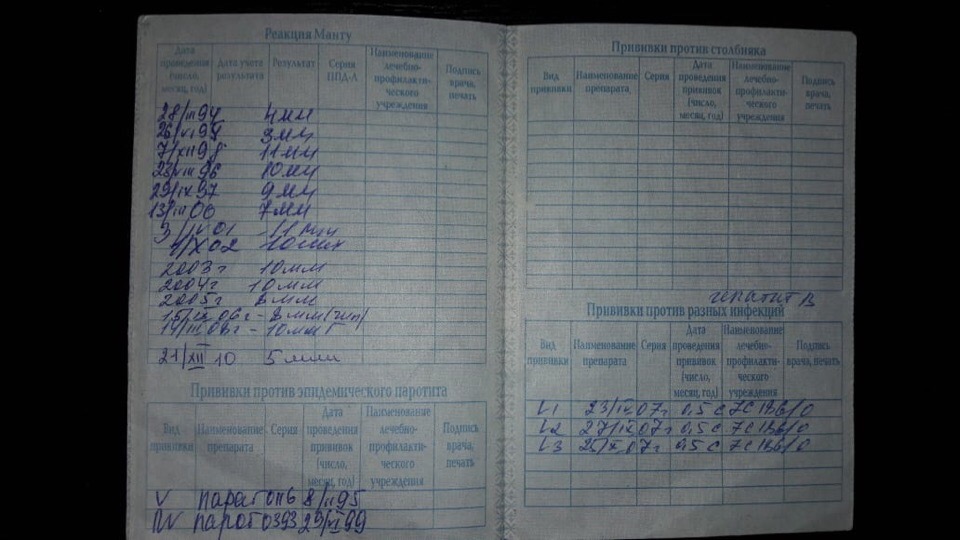 Реакция Манту
Дата проведения (число, месяц, год) Дата учета результата Результат Серия ППД-Л Наименование лечебно-профилактического учреждения Подпись врача, печать
28/III 94 4 мм
26/VI 95 9 мм
7/XII 98 11 мм
23/VIII 96 10 мм
29/IX 97 9 мм
13/III 00 7 мм
3/IV 01 - 11 мм
4/X 02 10 мм
2003 г 10 мм
2004 г 10 мм
2005 г 8 мм
15/IX 06 г - 8 мм
14/III 08 г - 10 мм
21/XII 10 5 мм
Прививки против эпидемического паротита
Вид прививки Наименование препарата Серия Дата проведения прививок (число, месяц, год) Наименование лечебно-профилактического учреждения Подпись врача, печать
V парот 0116 8/II 95
RV парот 0393 29/VI 99
Прививки против столбняка
Вид прививки Наименование препарата Серия Дата проведения прививок (число, месяц, год) Наименование лечебно-профилактического учреждения Подпись врача, печать
гепатит В
Прививки против разных инфекций
Вид прививки Наименование препарата Серия Дата проведения прививок (число, месяц, год) Наименование лечебно-профилактического учреждения Подпись врача, печать
V1 23/IV 07 г 0,5 с
V2 27/IX 07 г 0,5 с
V3 25/X 07 г 0,5 с